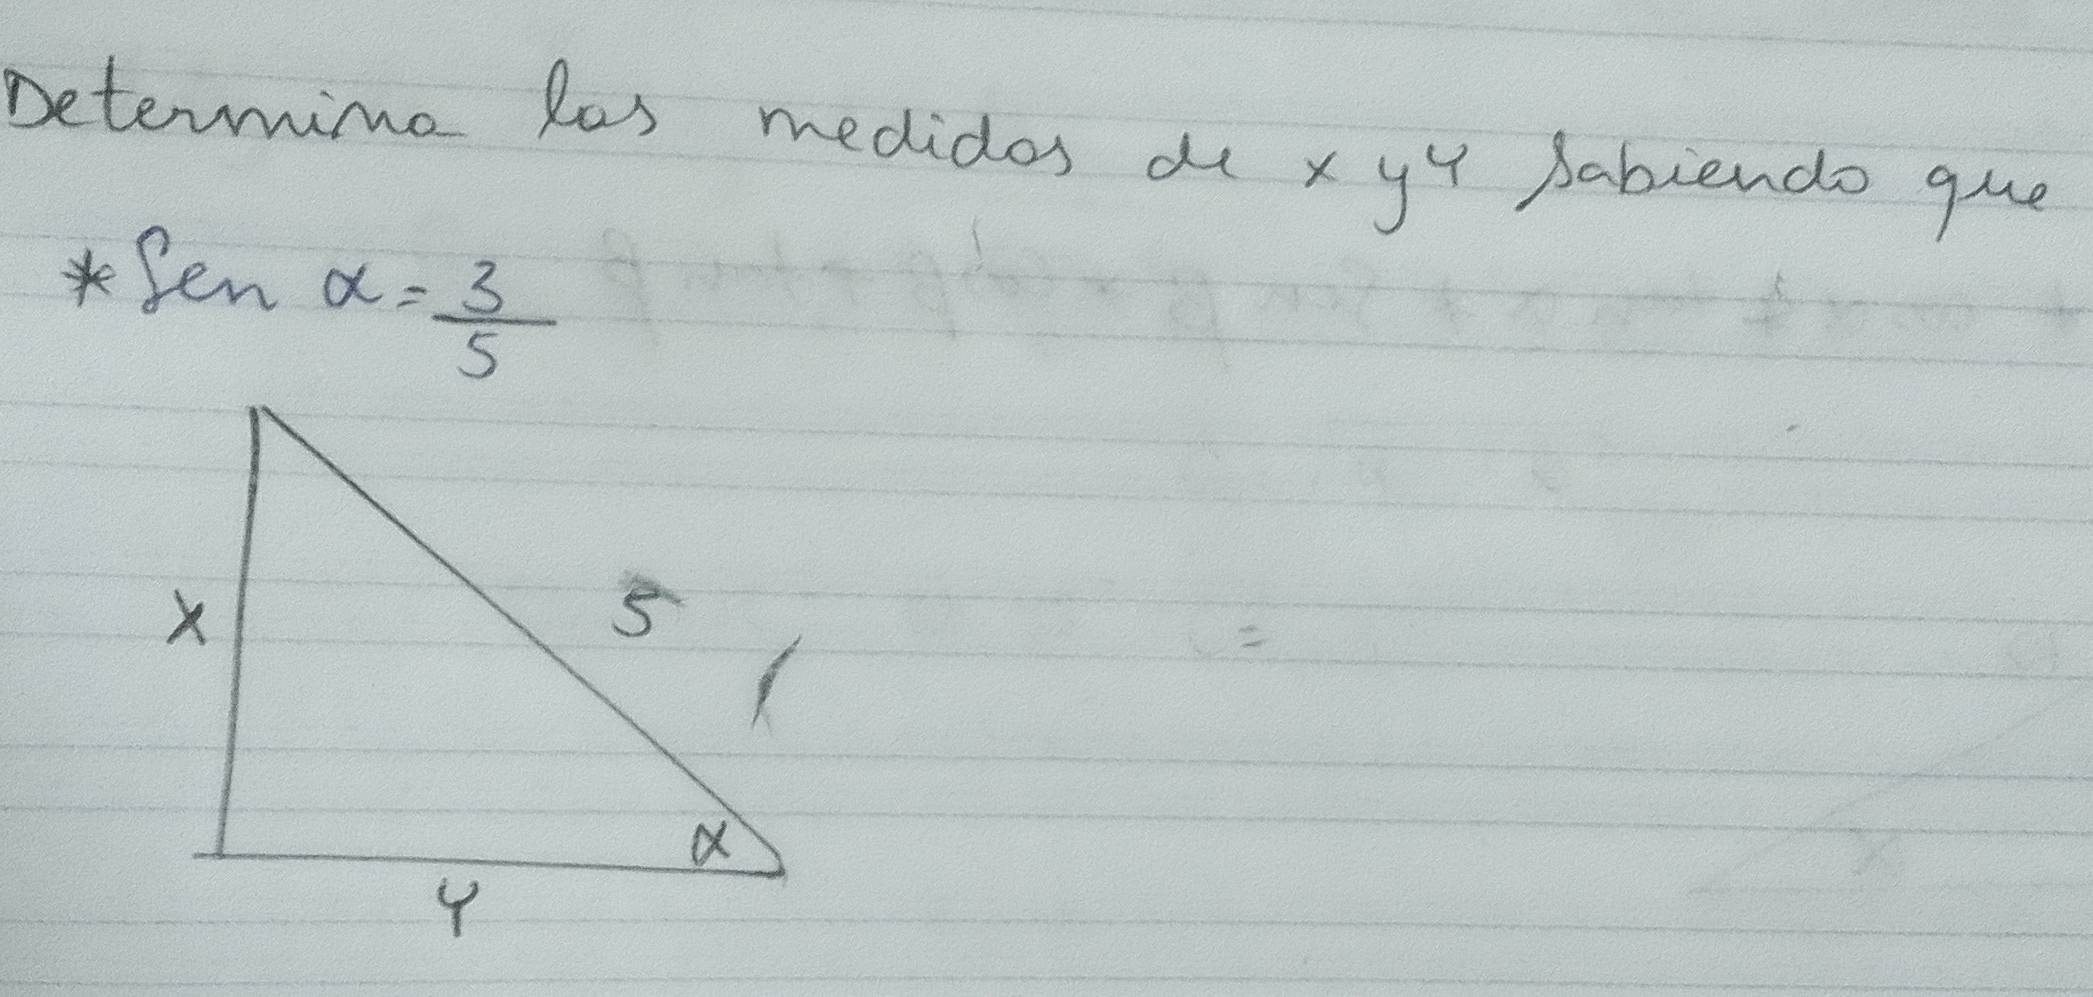 Determina las medidas de x y Y sabiendo que
* Sen α = 3/5
x
5
α
Y